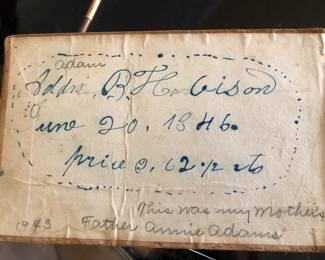 adam
Addm. B. Harbison
June 20, 1846.
price 0,62½ cts
This was my Mother's
1943 Father Annie Adams